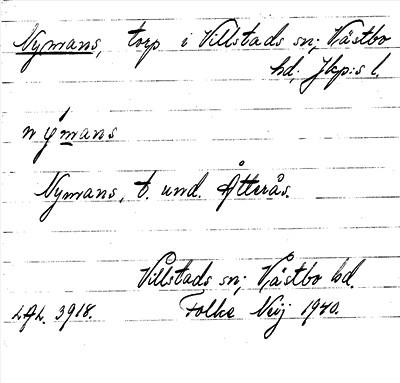 Nymans, torp i Villstads sn; Västbo
hd. Jkp:s l.
nýmans
Nymans, t. und. Åtterås.
Villstads sn; Västbo hd.
LAL. 3918. Folke Neij 1940.